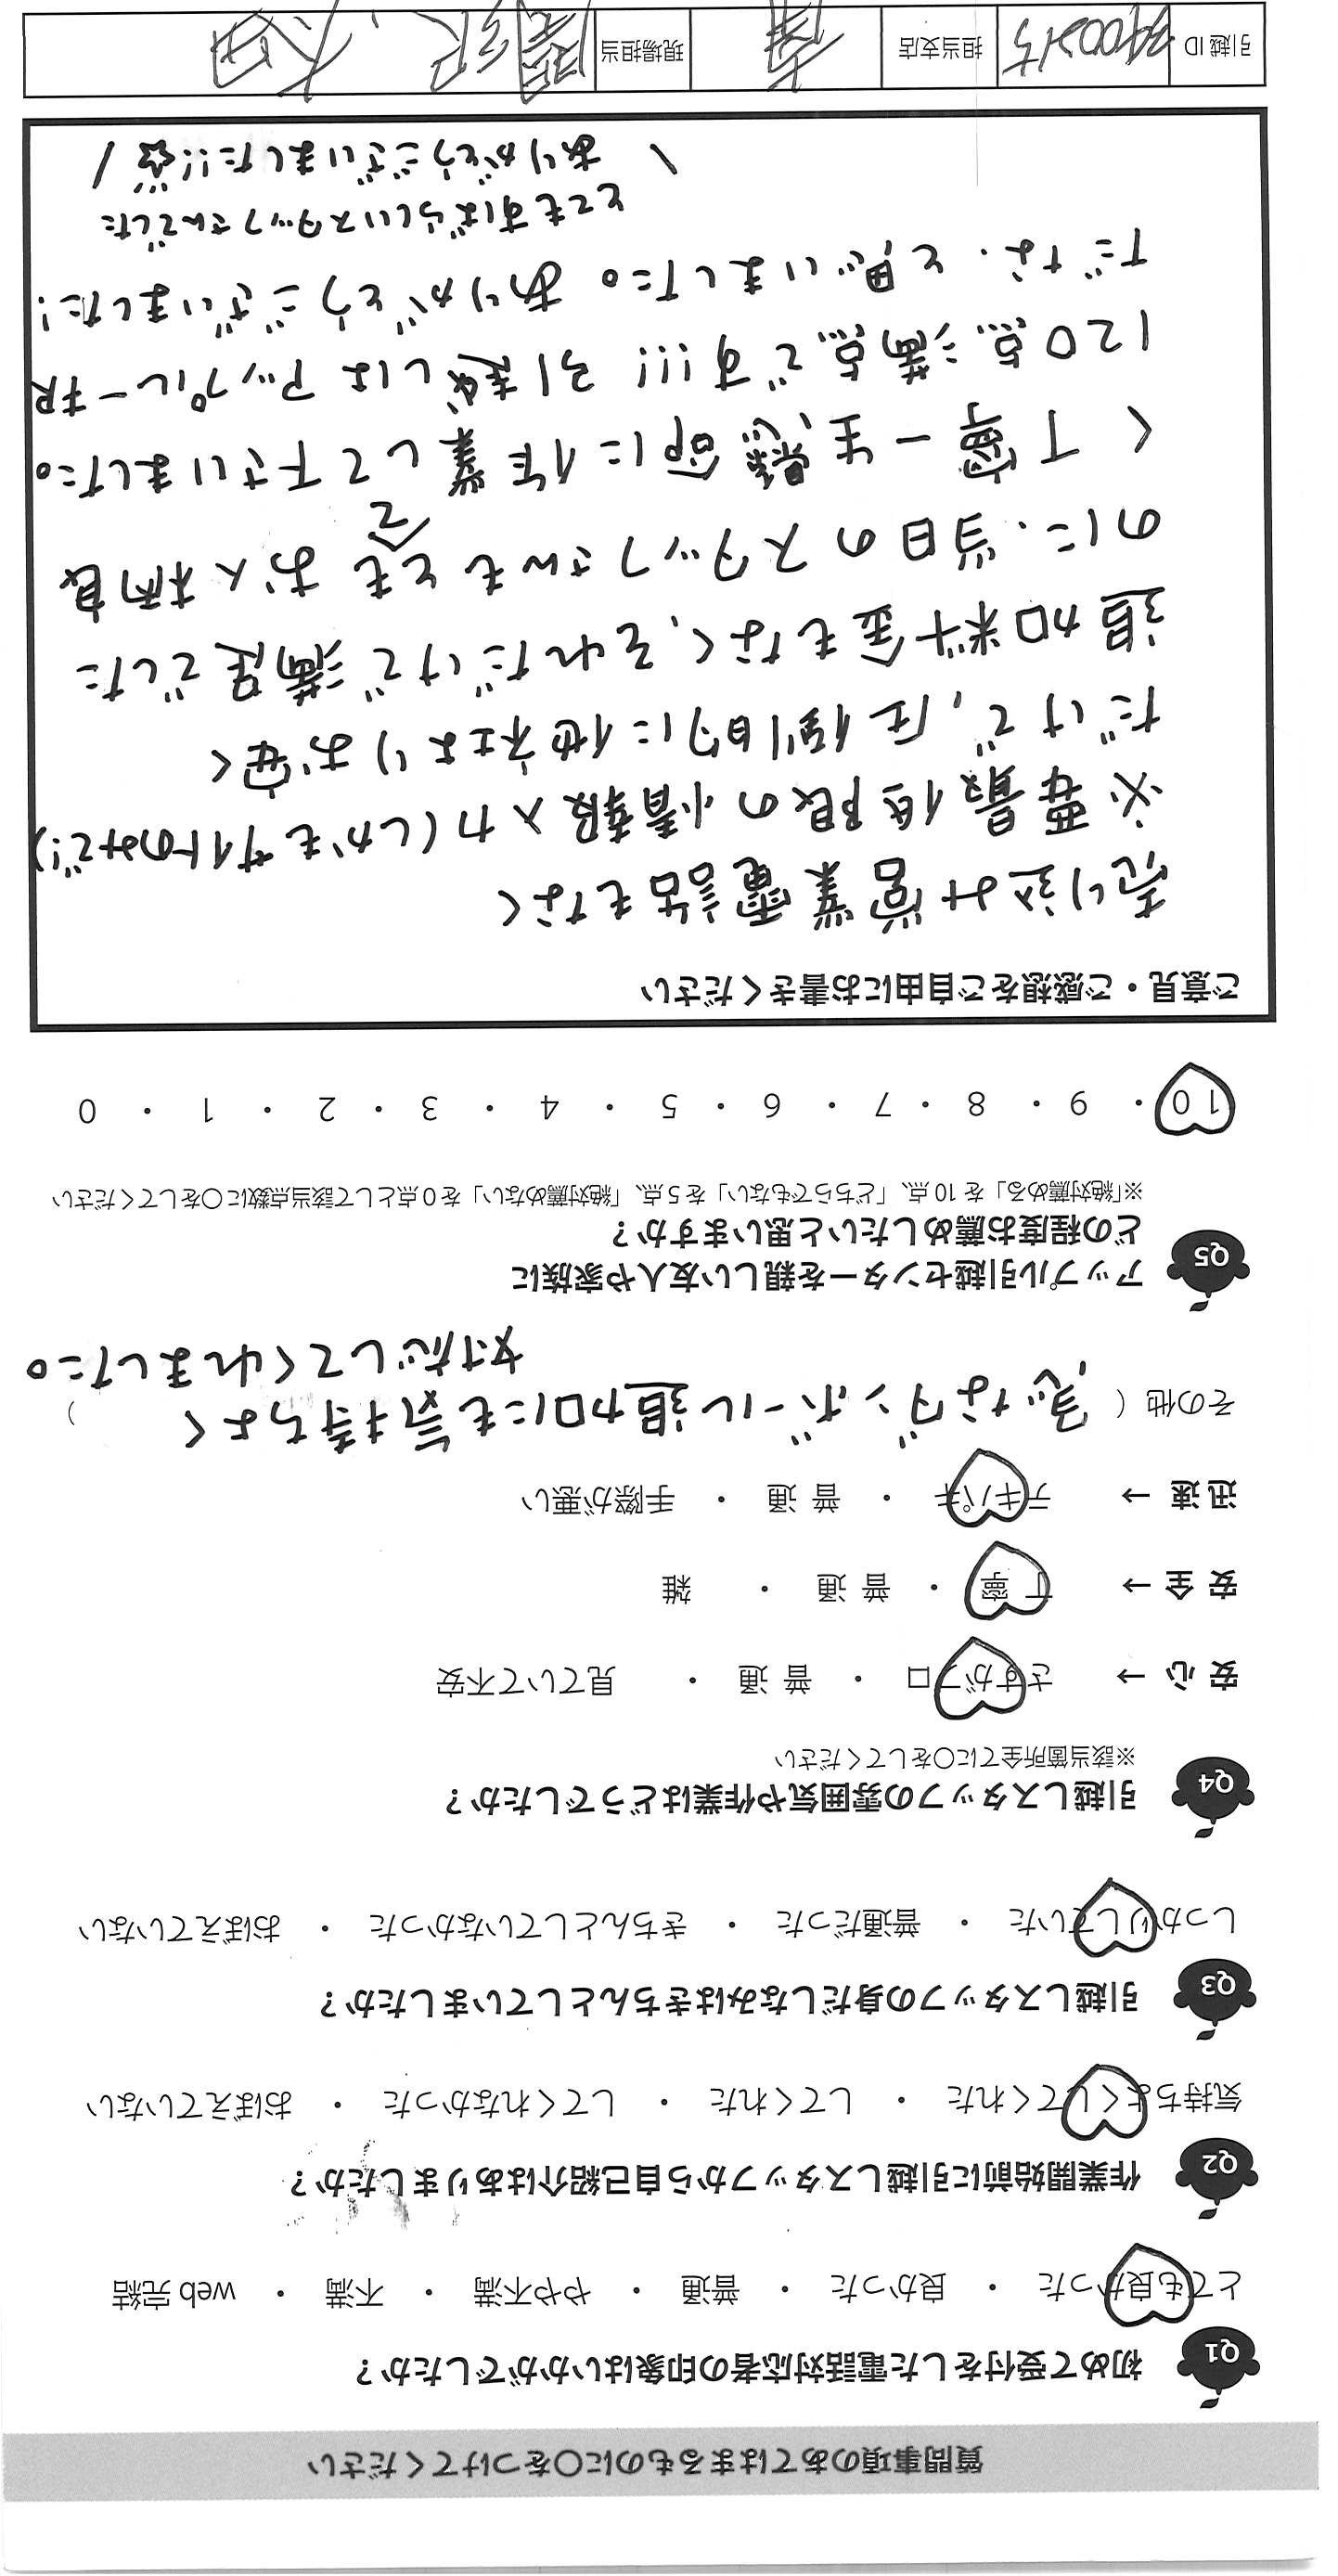 質問事項のあてはまるものに〇をつけてください
Q1 初めて受付をした電話対応者の印象はいかがでしたか？
とても良かった ・ 良かった ・ 普通 ・ やや不満 ・ 不満 ・ web 完結
Q2 作業開始前に引越しスタッフから自己紹介はありましたか？
気持ちよくしてくれた ・ してくれた ・ してくれなかった ・ おぼえていない
Q3 引越しスタッフの身だしなみはきちんとしていましたか？
しっかりしていた ・ 普通だった ・ きちんとしていなかった ・ おぼえていない
Q4 引越しスタッフの雰囲気や作業はどうでしたか？
※該当箇所全てに〇をしてください
安 心 → さすがプロ ・ 普 通 ・ 見ていて不安
安 全 → 丁 寧 ・ 普 通 ・ 雑
迅 速 → テキパキ ・ 普 通 ・ 手際が悪い
その他 ( 急なダンボール追加にも気持ちよく )
対応してくれました。
Q5 アップル引越センターを親しい友人や家族に
どの程度お薦めしたいと思いますか？
※「絶対薦める」を 10 点、「どちらでもない」を 5 点、「絶対薦めない」を 0 点として該当点数に〇をしてください
10 ・ 9 ・ 8 ・ 7 ・ 6 ・ 5 ・ 4 ・ 3 ・ 2 ・ 1 ・ 0
ご意見・ご感想をご自由にお書きください
売り込み営業電話もなく
必要最低限の情報入力(しかもサイトのみで!)
だけで、圧倒的に他社よりお安く
追加料金もなく、それだけで満足でした
のに、当日のスタッフさんもとてもお人柄良
く丁寧一生懸命に作業して下さいました。
120点満点です!!! 引越しはアップル一択
だな、と思いました。ありがとうございました!
とてもすばらしいスタッフさんでした
\ ありがとうございました!!☆ /
引越 ID 担当支店 現場担当